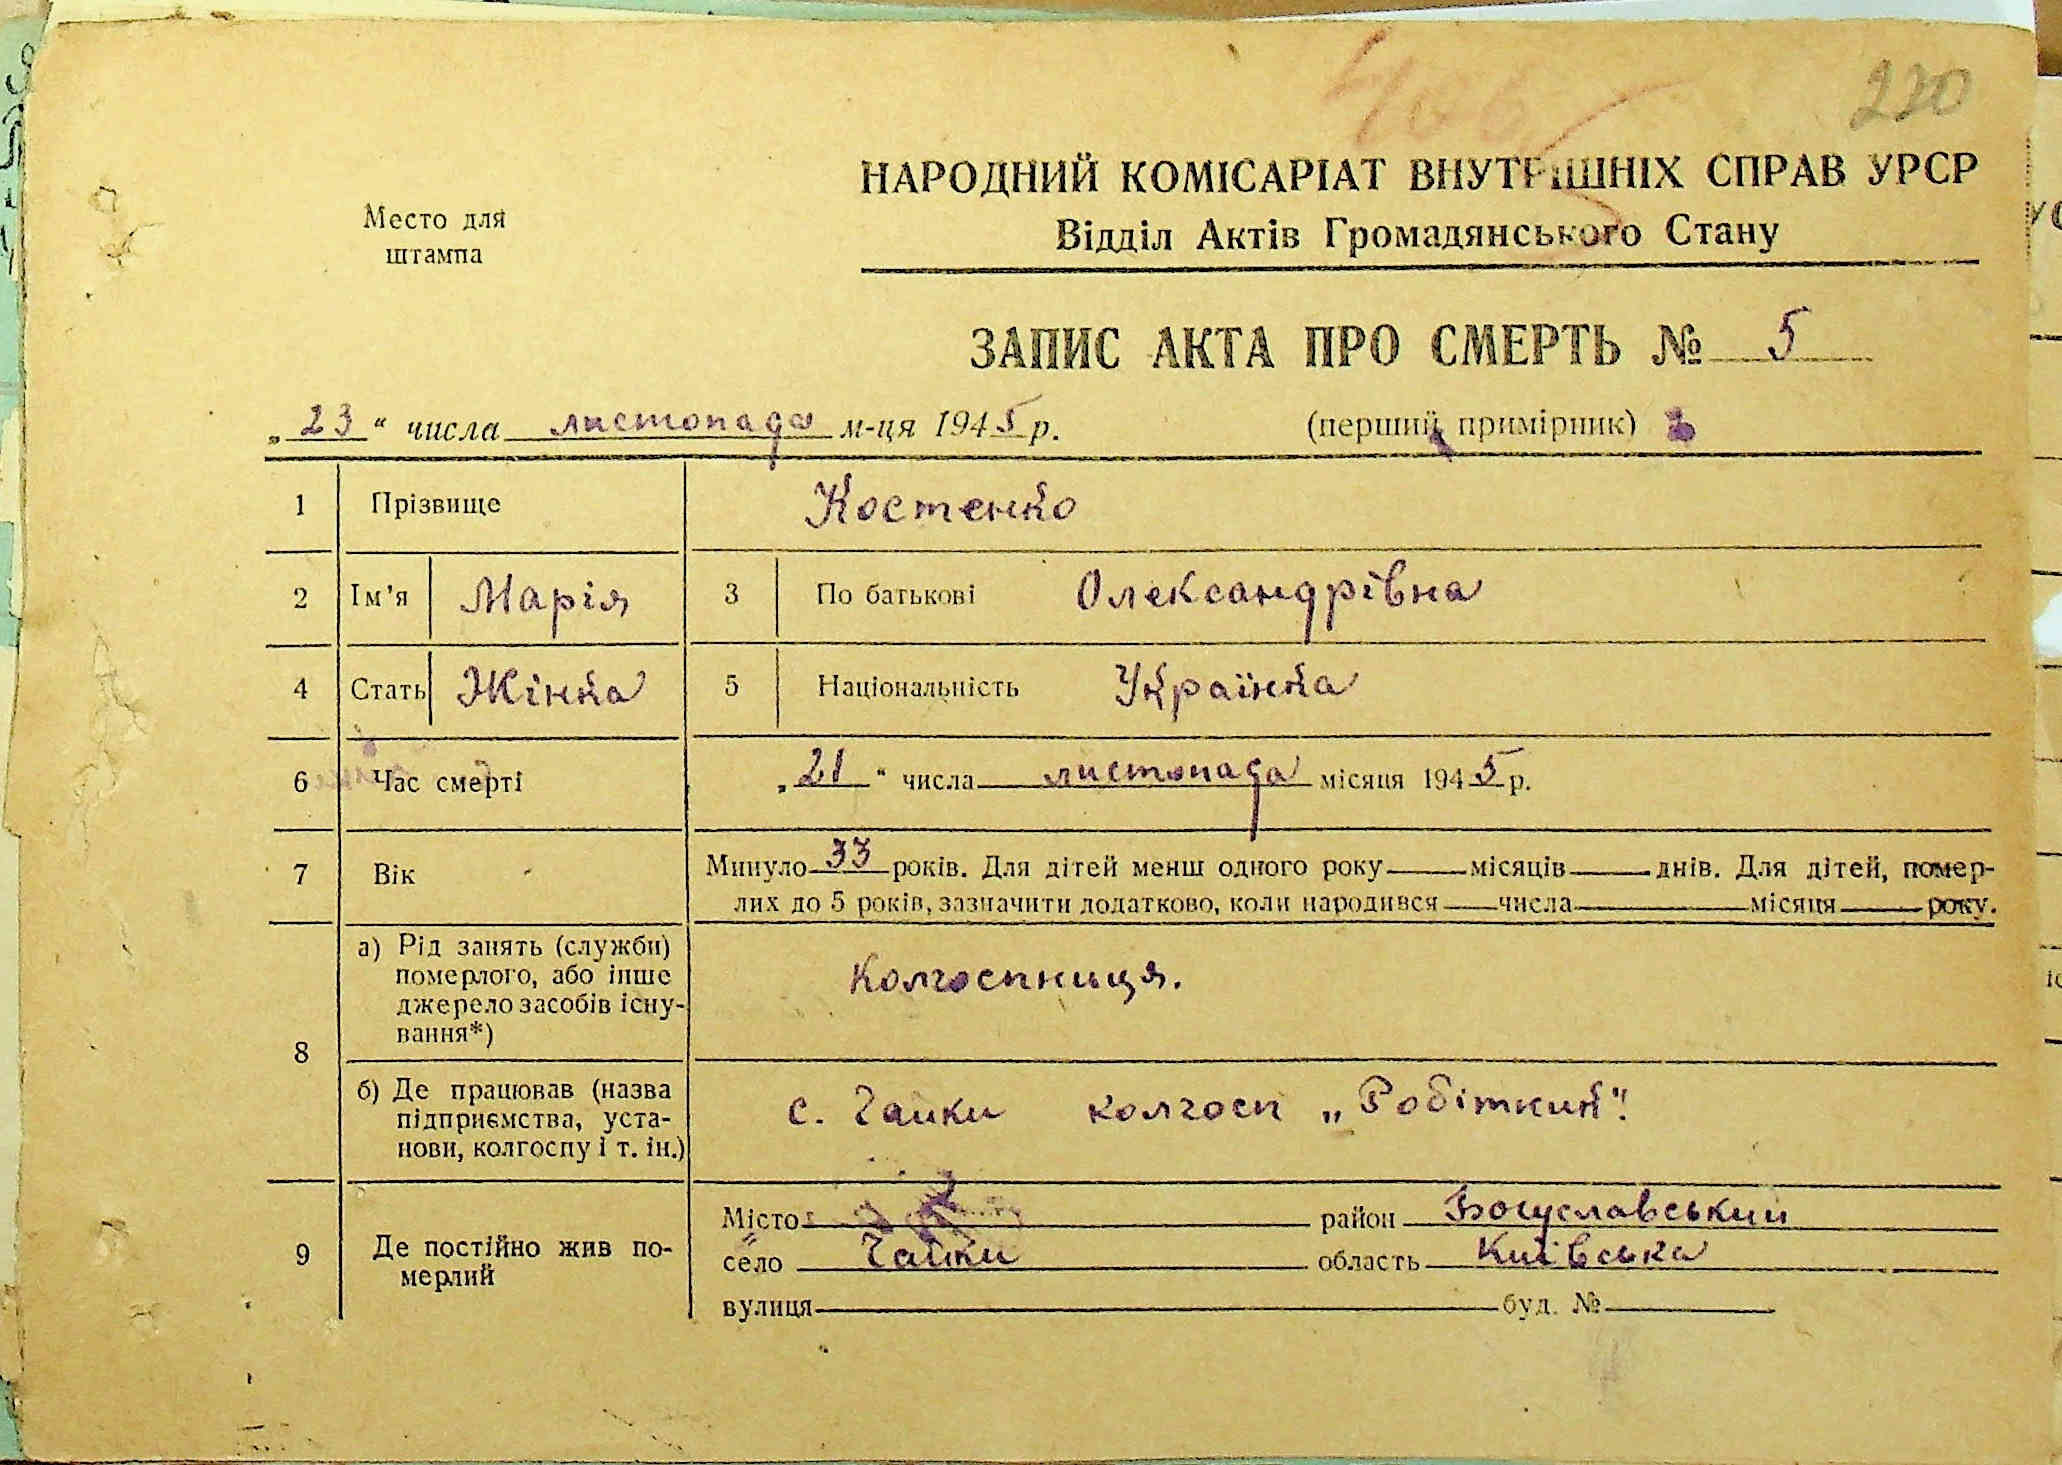 230
Место для
штампа
НАРОДНИЙ КОМІСАРІАТ ВНУТРІШНІХ СПРАВ УРСР
Відділ Актів Громадянського Стану
ЗАПИС АКТА ПРО СМЕРТЬ № 5
„23“ числа листопада м-ця 1945 р. (перший примірник)
1 Прізвище Костенко
2 Ім'я Марія 3 По батькові Олександрівна
4 Стать Жінка 5 Національність Українка
6 Час смерті „21“ числа листопада місяця 1945 р.
7 Вік Минуло 33 років. Для дітей менш одного року місяців днів. Для дітей, помер-
лих до 5 років, зазначити додатково, коли народився числа місяця року.
8 а) Рід занять (служби)
померлого, або інше
джерело засобів існу-
вання*) Колгоспниця.
б) Де працював (назва
підприємства, уста-
нови, колгоспу і т. ін.) с. Чайки колгосп „Робітний".
9 Де постійно жив по-
мерлий
Місто район Богуславський
село Чайки область Київська
вулиця буд. №